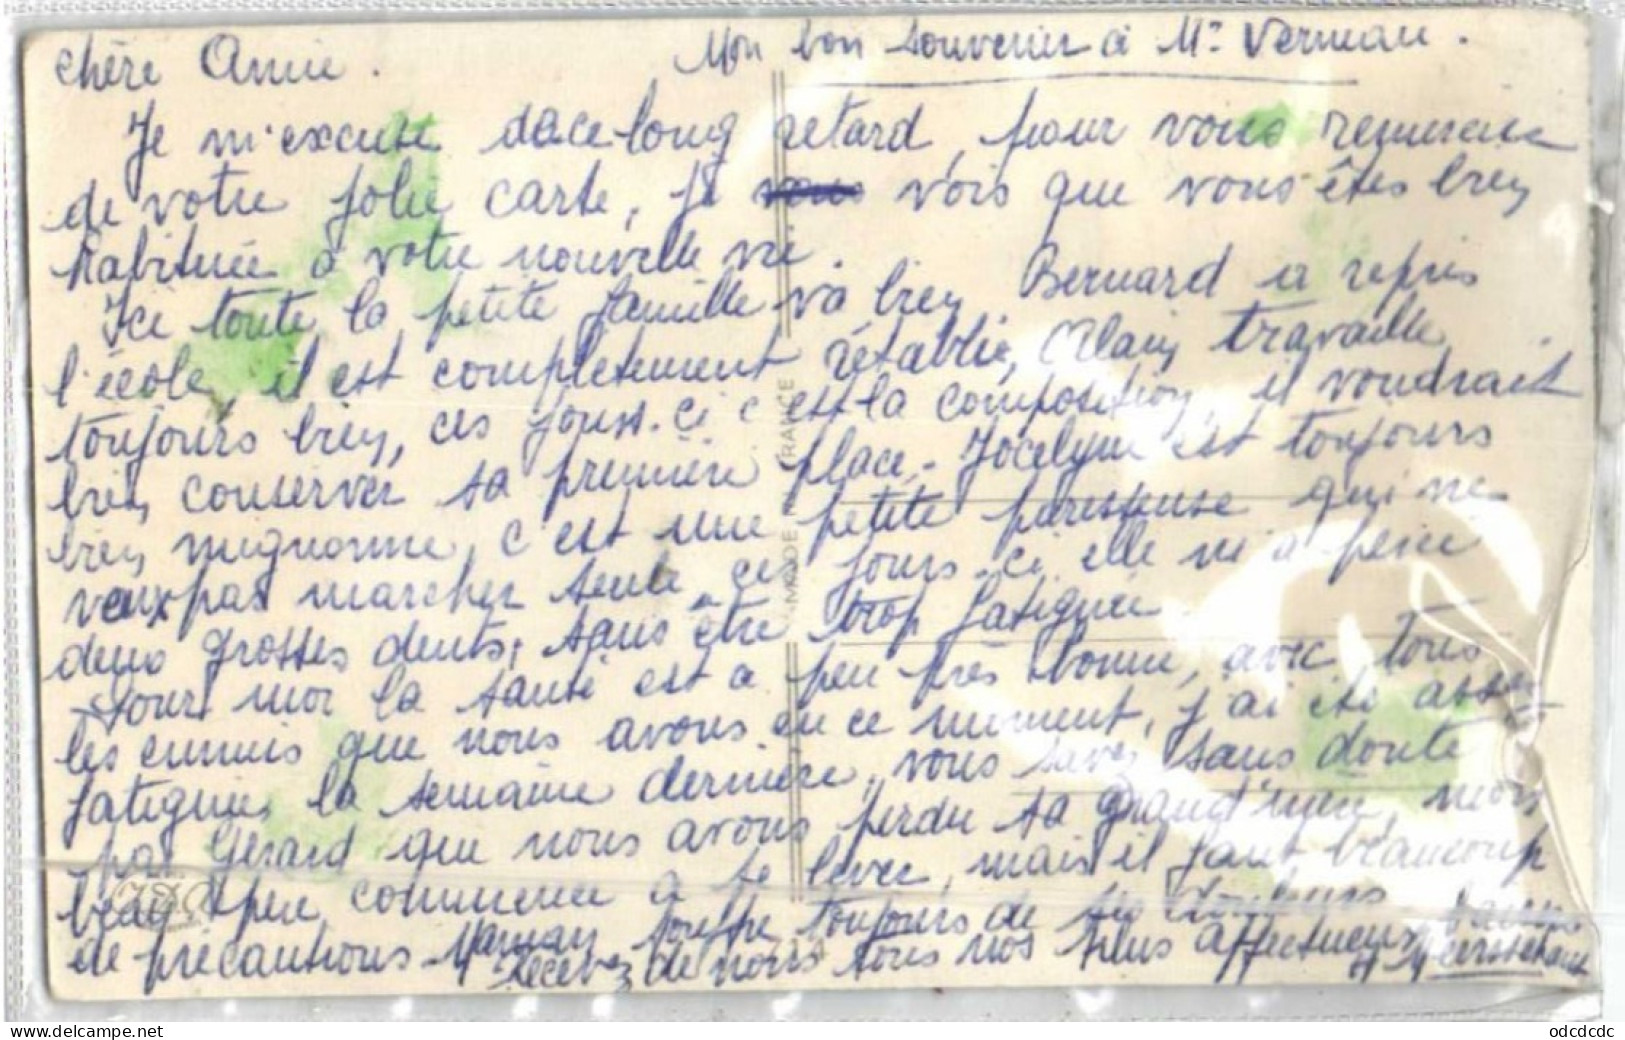 Mon bon souvenir à Mr Verneau.
Chère Annie.
Je m'excuse de ce long retard, pour vous remercier
de votre jolie carte, je vois que vous êtes bien
habituée à votre nouvelle vie.
Ici toute la petite famille va bien Bernard a repris
l'école, il est complètement rétablie, Alain travaille
toujours bien, ces jours-ci c'est la composition, il voudrait
bien conserver sa première place. Jocelyne est toujours
bien mignonne, c'est une petite paresseuse qui ne
veux pas marcher seule, ces jours-ci elle m'a percé
deux grosses dents, sans être trop fatiguée.
Pour moi la santé est à peu près bonne, avec tous
les ennuis que nous avons en ce moment, j'ai été assez
fatiguée la semaine dernière, vous savez sans doute
par Gérard que nous avons perdu sa Grand'mère, mon
peu commence à se lever, mais il faut beaucoup
de précautions Maman souffre toujours de ses douleurs
Recevez de nous tous nos plus affectueux
MADE IN FRANCE
delcampe.net
odcdcdc